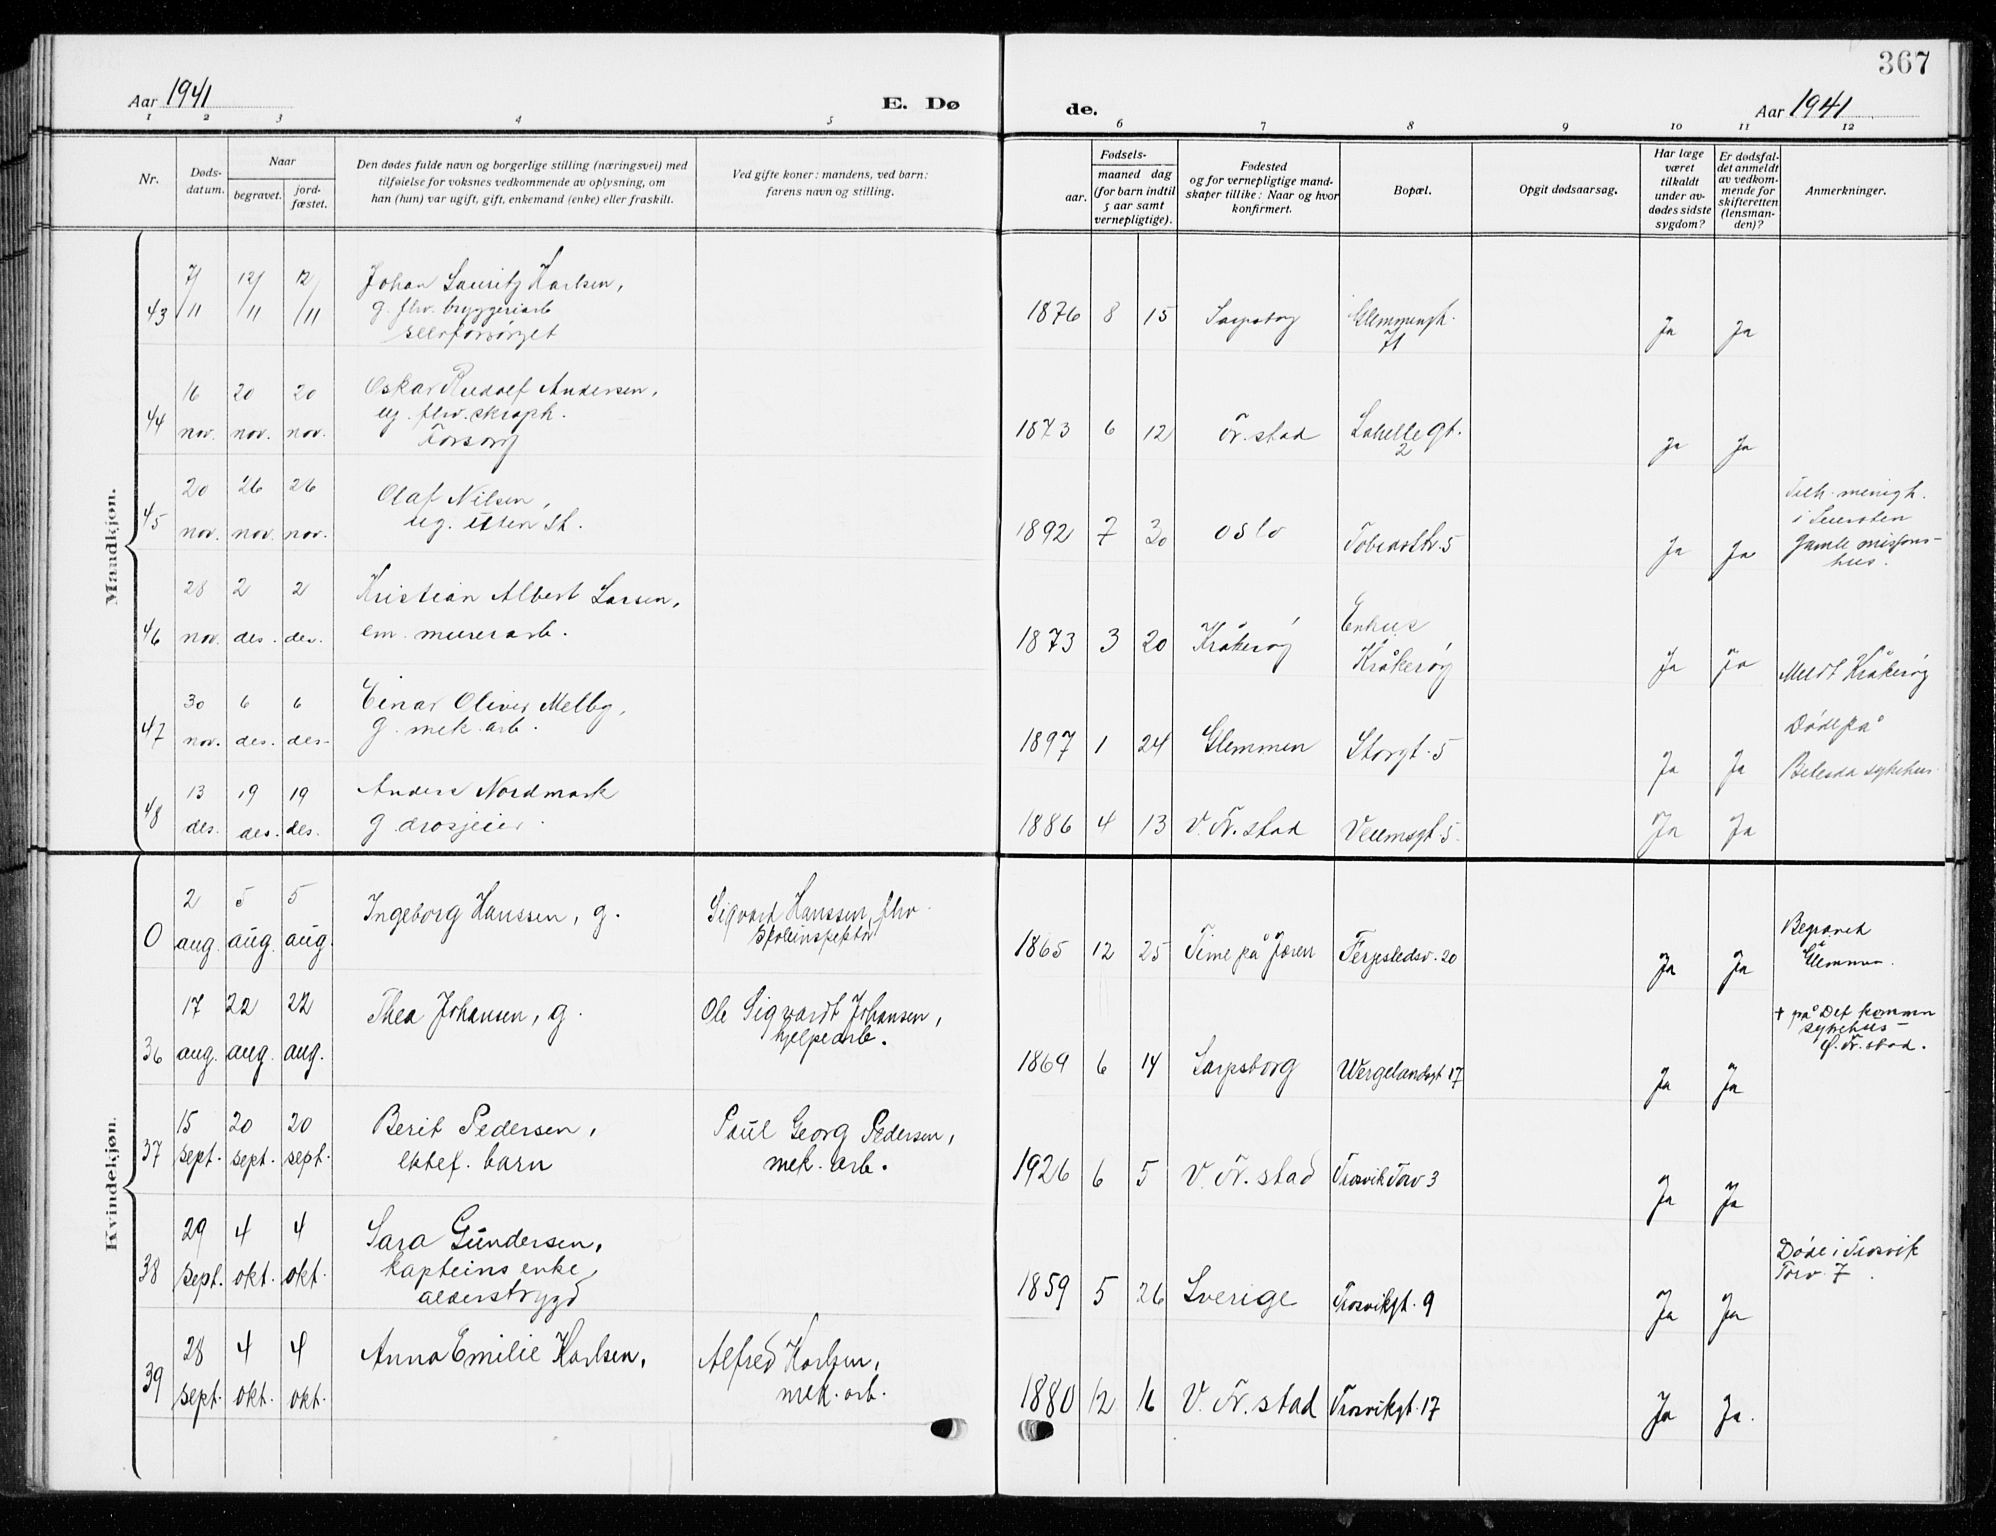 367
Aar 1941
E. Dø
de.
Aar 1941
1 2 3 4 5 6 7 8 9 10 11 12
Nr.
Døds-
datum.
Naar
begravet.
jord-
fæstet.
Den dødes fulde navn og borgerlige stilling (næringsvei) med
tilføielse for voksnes vedkommende av oplysning, om
han (hun) var ugift, gift, enkemand (enke) eller fraskilt.
Ved gifte koner: mandens, ved barn:
farens navn og stilling.
Fødsels-
aar.
maaned dag
(for barn indtil
5 aar samt
vernepligtige).
Fødested
og for vernepligtige mand-
skaper tillike: Naar og hvor
konfirmert.
Bopæl.
Opgit dødsaarsag.
Har læge
været
tilkaldt
under av-
dødes sidste
sygdom?
Er dødsfal-
det anmeldt
av vedkom-
mende for
skifteretten
(lensman-
den)?
Anmerkninger.
Mandkjøn.
43 7/11 12/11 12/11 Johan Lauritz Karlsen,
g. fhv. bryggeriarb
selvforsørget
1876 8 15 Sarpsborg Glemmengt.
71
Ja Ja
44 16 nov. 20 nov. 20 nov. Oskar Rudolf Andersen,
ug. fhv. skraph.
Forsorg
1873 6 12 Fr. stad Lahellegt.
2
Ja Ja
45 20 nov. 26 nov. 26 nov. Olaf Nilsen,
ug. uten st.
1892 7 30 Oslo 5
Ja Ja
Tilh. menigh.
i
Gamle misjons-
hus.
46 28 nov. 2 des. 2 des. Kristian Albert Larsen,
em. murerarb.
1873 3 20 Kråkerøy Enhus
Kråkerøy
Ja Ja Meldt Kråkerøy
47 30 nov. 6 des. 6 des. Einar Oliver Melby,
g. mek. arb.
1897 1 24 Glemmen Storgt. 5
Ja Ja
Døde på
Betesda sykehus
48 13 des. 19 des. 19 des. Anders Nordmark
g. drosjeeier.
1886 4 13 V. Fr. stad Veumsgt. 5.
Ja Ja
Kvindekjøn.
0 2 aug. 5 aug. 5 aug. Ingeborg Hanssen, g.
Sigvart Hanssen, fhv.
skoleinspektør
1865 12 25 Time på Jæren Ferjestedsv. 20
Ja Ja
Begravet
å
Glemmen.
36 17 aug. 22 aug. 22 aug. Thea Johansen, g.
Ole Sigvardt Johansen,
hjelpearb.
1869 6 14 Sarpsborg Wergelandsgt 17
Ja Ja
+ på Det kommun
sykehus -
Ø. Fr. stad.
37 15 sept. 20 sept. 20 sept. Berit Pedersen,
ektef. barn
Paul Georg Pedersen,
mek. arb.
1926 6 5 V. Fr. stad Trosvik Torv 3
Ja Ja
38 29 sept. 4 okt. 4 okt. Sara Gundersen,
kapteins enke,
alderstrygd
1859 5 26 Sverige Trosvikgt. 9
Ja Ja
Døde i Trosvik
Torv 7.
39 28 sept. 4 okt. 4 okt. Anna Emilie Karlsen,
Alfred Karlsen,
mek. arb.
1880 12 16 V. Fr. stad Trosvikgt. 17
Ja Ja.